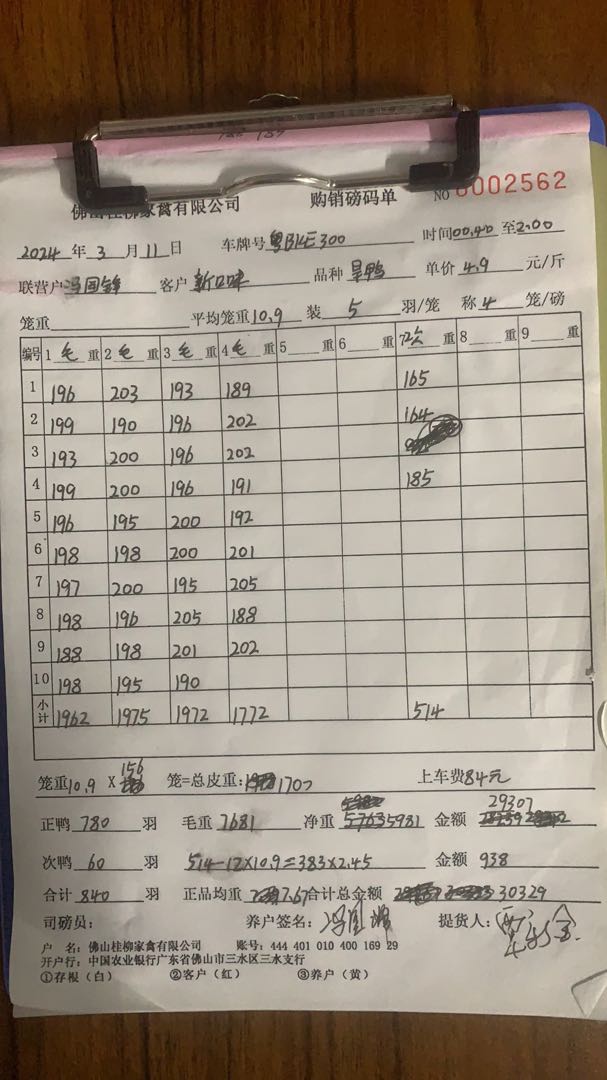 佛山桂柳家禽有限公司 购销磅码单 NO 0002562
2024年3月11日 车牌号 粤BKE300 时间00:40至2:00
联营户 冯国锋 客户 新口味 品种 旱鸭 单价4.9元/斤
笼重 平均笼重10.9 装5羽/笼 称4笼/磅
编号 1毛重 2毛重 3毛重 4毛重 5重 6重 次重 8重 9重
1 196 203 193 189 165
2 199 190 196 202 164
3 193 200 196 202
4 199 200 196 191 185
5 196 195 200 192
6 198 198 200 201
7 197 200 195 205
8 198 196 205 188
9 188 198 201 202
10 198 195 190
小计 1962 1975 1972 1772 514
笼重10.9 X 156 笼=总皮重: 1700 上车费84元
正鸭780羽 毛重7681 净重5981 金额29307
次鸭60羽 514-12×10.9=383×2.45 金额938
合计840羽 正品均重7.67 合计总金额30329
司磅员: 养户签名: 提货人:
户 名: 佛山桂柳家禽有限公司 账号: 444 401 010 400 169 29
开户行: 中国农业银行广东省佛山市三水区三水支行
①存根（白） ②客户（红） ③养户（黄）